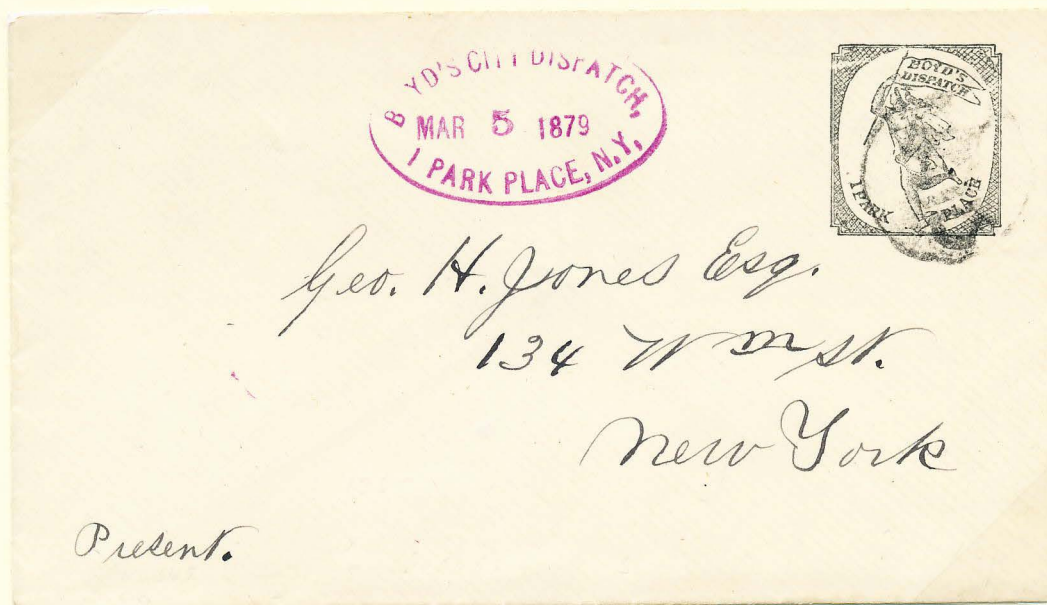 BOYD'S CITY DISPATCH,
MAR 5 1879
1 PARK PLACE, N.Y.
BOYD'S
DISPATCH
1 PARK PLACE
Geo. H. Jones Esq.
134 Wm St.
New York
Present.